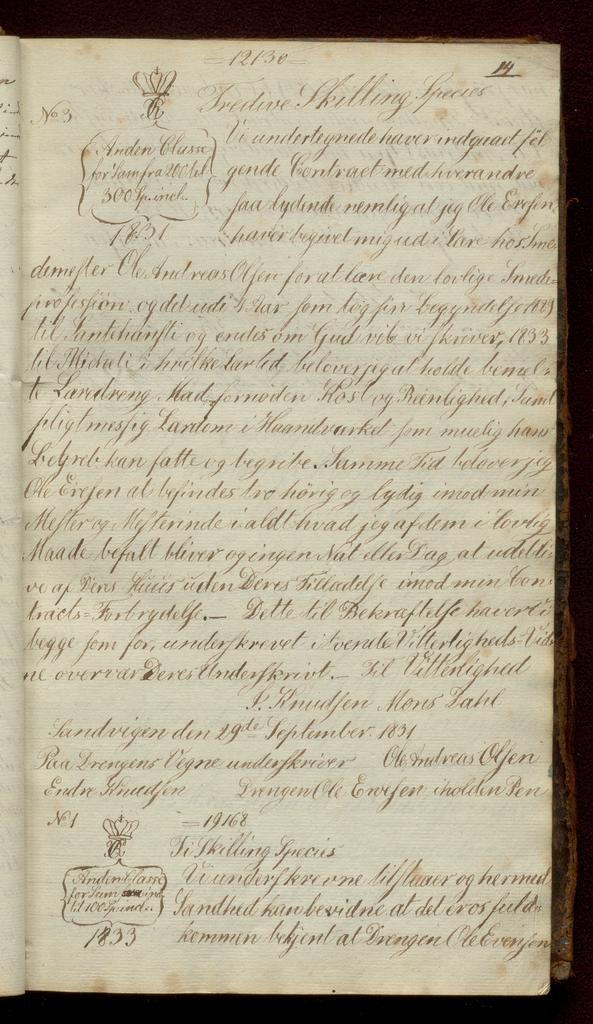 =12130=
14
No 3
Tredive Skilling Species
Anden Classe
for Sum fra 200 til
300 Sp. incl.
1831
Vi undertegnede haver indgaaet føl
gende Contract med hverandre
saa lydende nemlig at jeg Ole Evesen
haver begivet mig ud i lære hos Sme
demester Ole Andreas Olsen for at lære den lovlige Smede=
profession, og det udi 4 Aar som tog sin begyndelse 1829
til Santehansti og endes om Gud vil vi skriver, 1833
til Micheli i hvilke tid belover jeg at holde bemel=
te Læredreng Mad fornøden Kost og Reenlighed, Samt
pligtmessig Lærdom i Haandværket som muelig hans
Begreb kan fatte og begribe. Samme Tid belover jeg
Ole Evesen at befindes tro hörig og lydig imod min
Mester og Mesterinde i aldt hvad jeg af dem i lovlig
Maade befalt bliver og ingen Nat eller Dag at udebli=
ve af Deris Huus uden Deres Tilladelse imod min Con=
tracts=Forbrydelse.— Dette til Bekræftelse haver vi
begge som for, underskrevet i tvende Vitterligheds=Vid=
ne overvær Deres Underskrivt.— Til Vitterlighed
I. Knudsen Mons Dahl
Sandvigen den 29de September 1831
Paa Drengens Vegne underskriver Ole Andreas Olsen
Endre Knudsen Drengen Ole Evesen iholden Pen
No 1 =19168
Ti Skilling Species
Anden Classe
for Sum
til 100 Sp. incl.
1833
Vi underskrevne tilstaaer og hermed
Sandhed kan bevidne at det er os fuld=
kommen bekjent at Drengen Ole Evensen